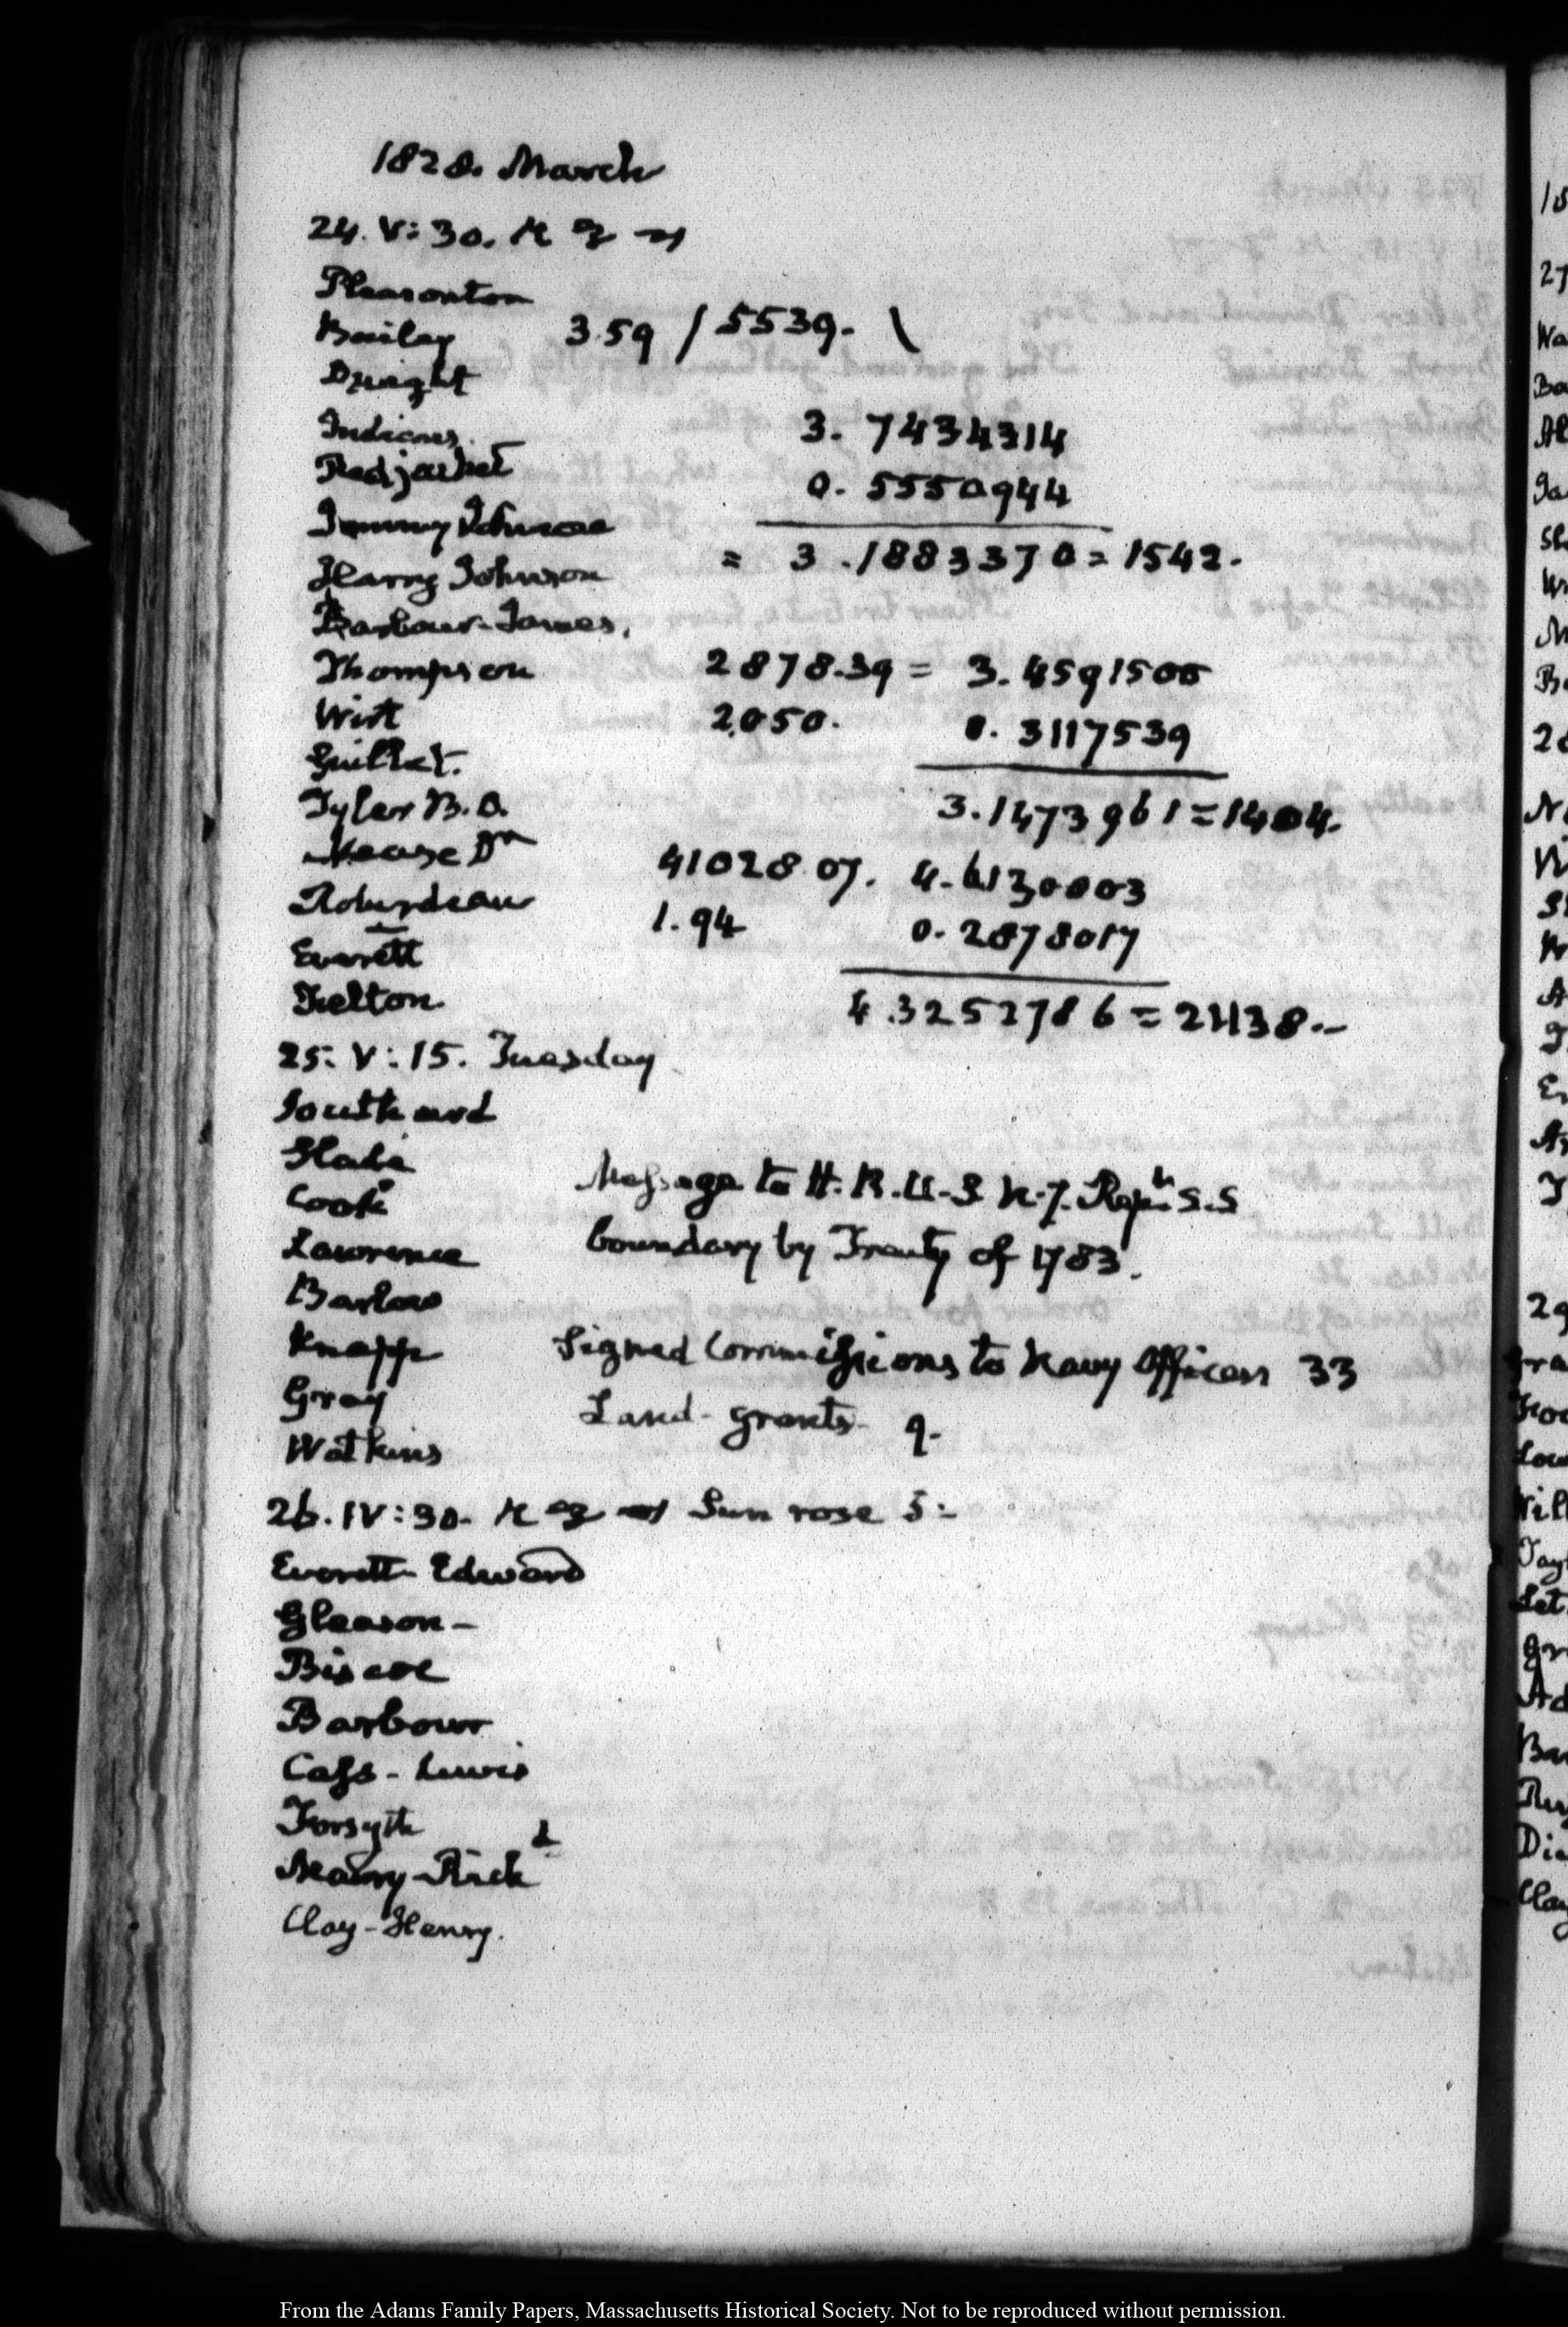 1828. March
24. V:30.
Pleasonton
Bailey 3.59 / 5539. \
Dwight
Indians. 3. 7434314
Redjacket 0. 5550944
Jemmy Johnson
Harry Johnson = 3 .1883370 = 1542.
Barbour-James.
Thompson 2878.39 = 3. 4591500
Wirt 2.050. 0. 3117539
Tyler B.O. 3.1473961 = 1404.
Mease Dr 41028.07. 4. 6130803
Roberdeau 1.94 0. 2878017
Everett
Kelton. 4.3252786 = 21138.-
25. V:15. Tuesday
Southard
Slade Message to H.R.U.S
Cook
Lawrence boundary by Treaty of 1783.
Barlow
Knapp Signed Commissions to Navy Officers 33
Gray Land-grants 9.
Watkins
26. IV:30. Sun rose 5:-
Everett-Edward
Gleason-
Biscoe
Barbour
Cass-Lewis
Forsyth
Meany-Rich d
Clay-Henry.
From the Adams Family Papers, Massachusetts Historical Society. Not to be reproduced without permission.